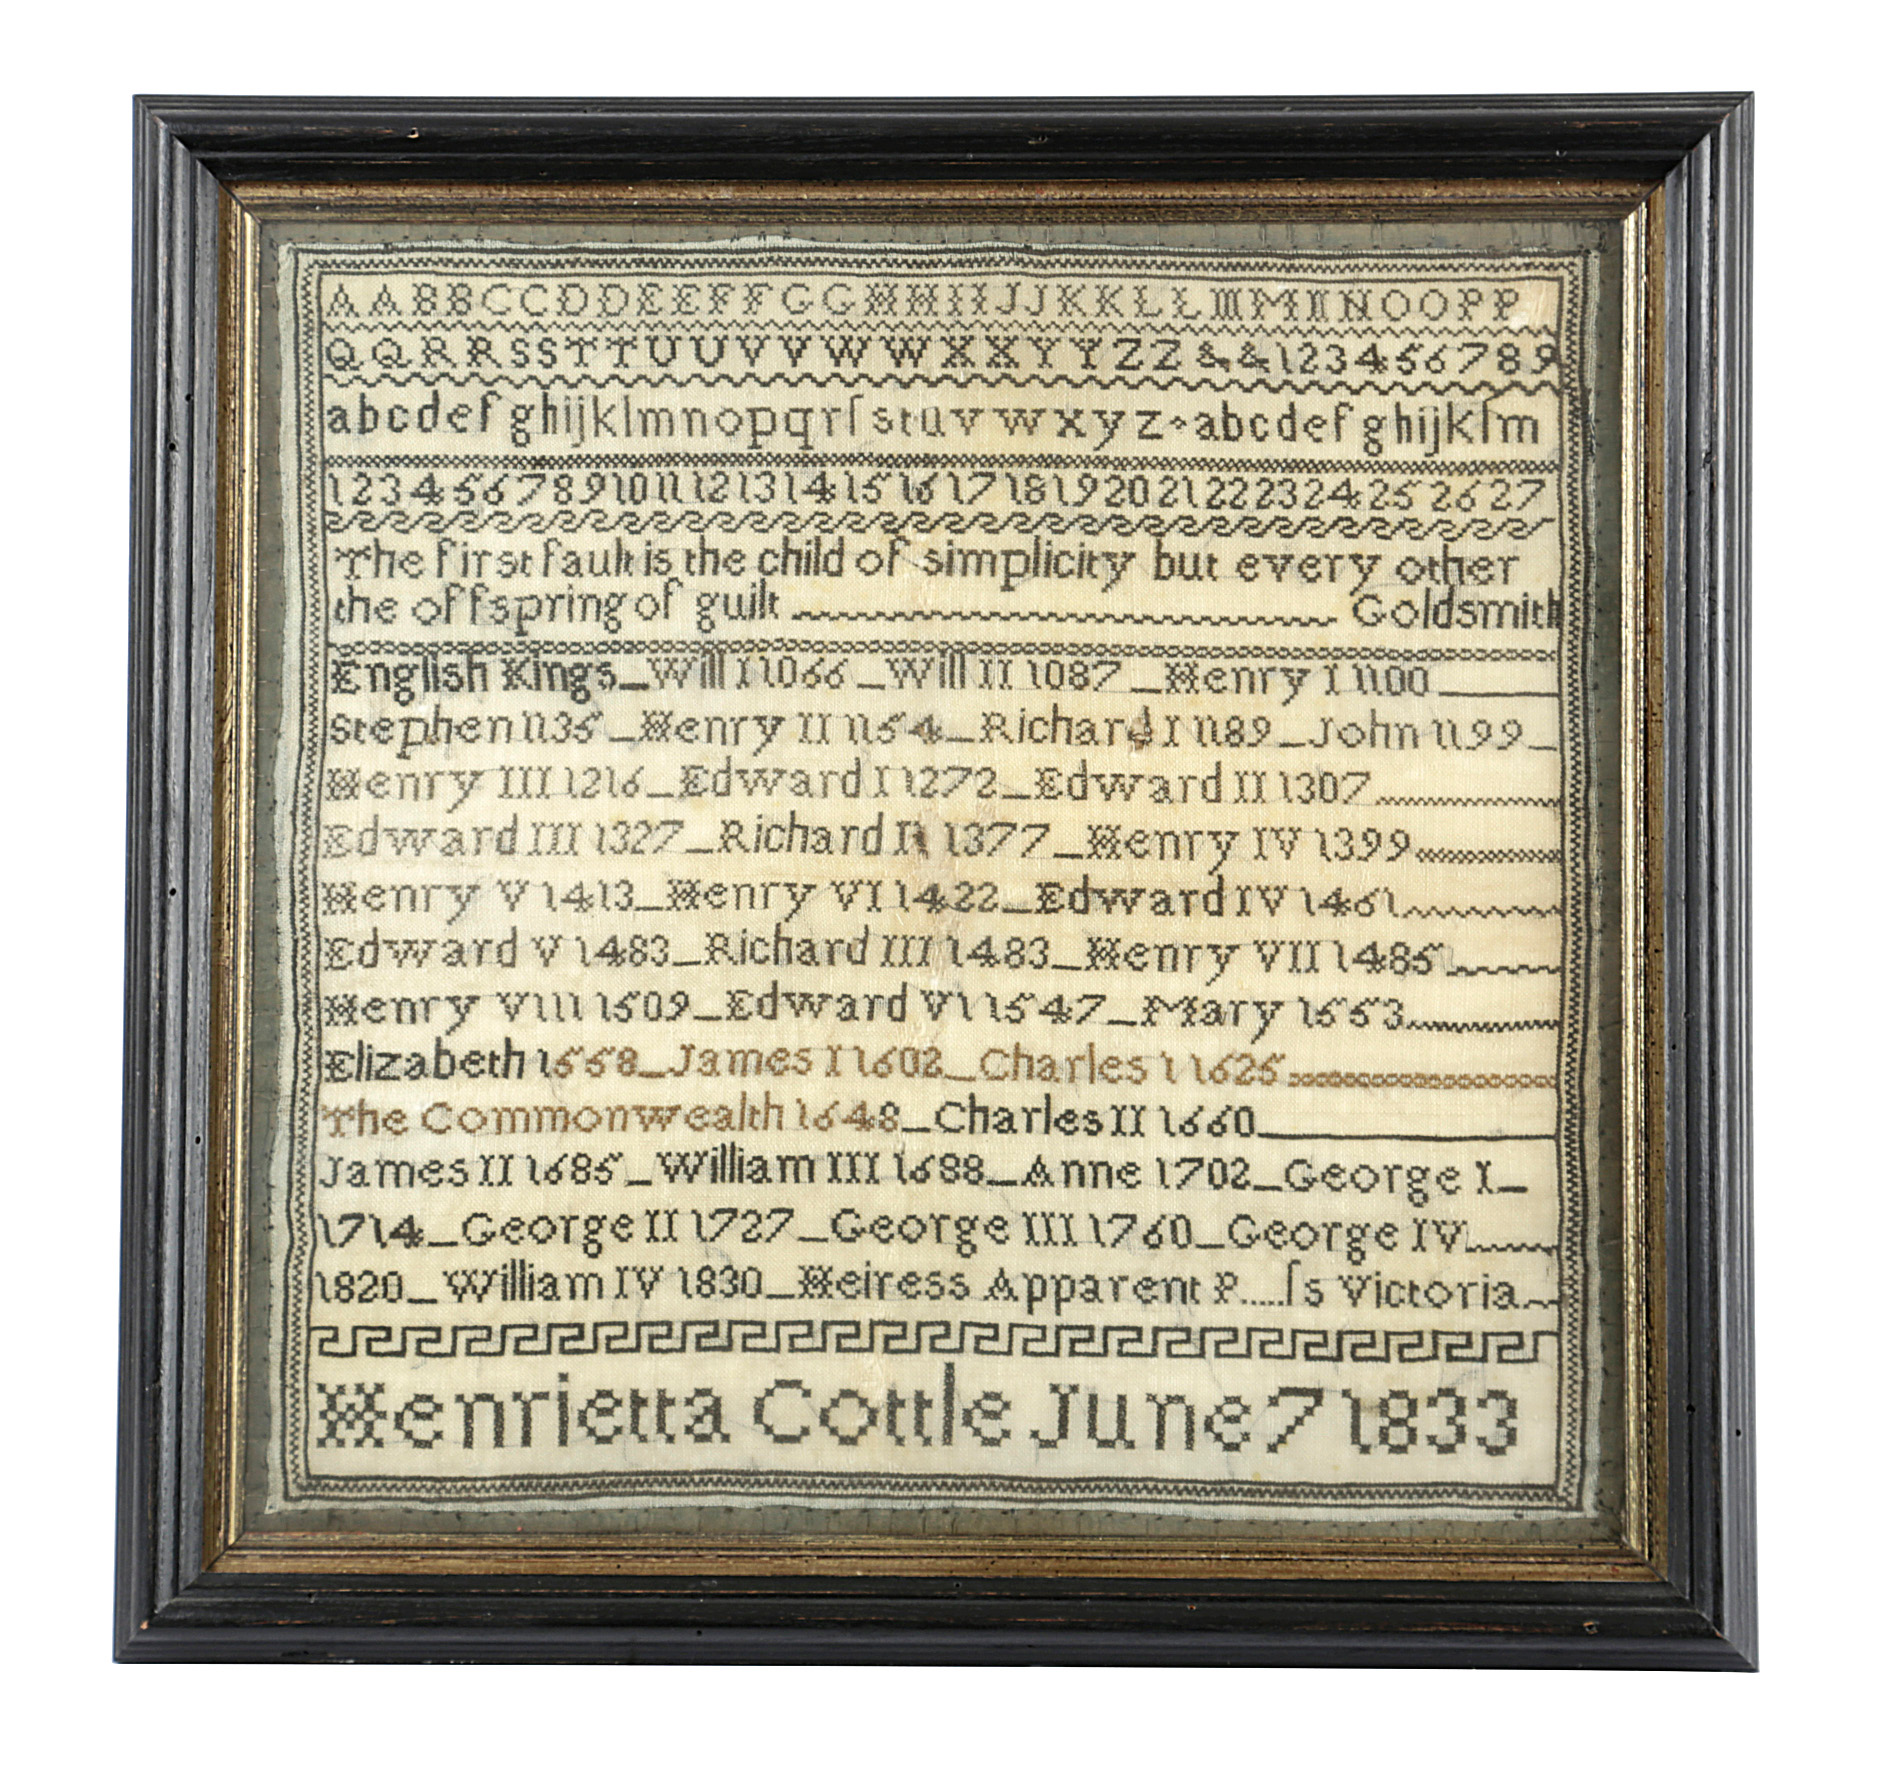 AABBCCDDEEFFGGHHIIJJKKLLMMNNOOPP
QQRRSSTTUUVVWWXXYYZZ&&123456789
abcdefghijklmnopqrſstuvwxyz abcdefghijklm
123456789101112131415161718192021222324252627
The first fault is the child of simplicity but every other
the offspring of guilt Goldsmith
English Kings_Will I 1066_Will II 1087_Henry I 1100
Stephen 1135_Henry II 1154_Richard I 1189_John 1199_
Henry III 1216_Edward I 1272_Edward II 1307
Edward III 1327_Richard II 1377_Henry IV 1399
Henry V 1413_Henry VI 1422_Edward IV 1461
Edward V 1483_Richard III 1483_Henry VII 1485
Henry VIII 1509_Edward VI 1547_Mary 1553
Elizabeth 1558_James I 1602_Charles I 1625
The Commonwealth 1648_Charles II 1660
James II 1685_William III 1688_Anne 1702_George I_
1714_George II 1727_George III 1760_George IV
1820_William IV 1830_Heiress Apparent P.....ſs Victoria
Henrietta Cottle June 7 1833